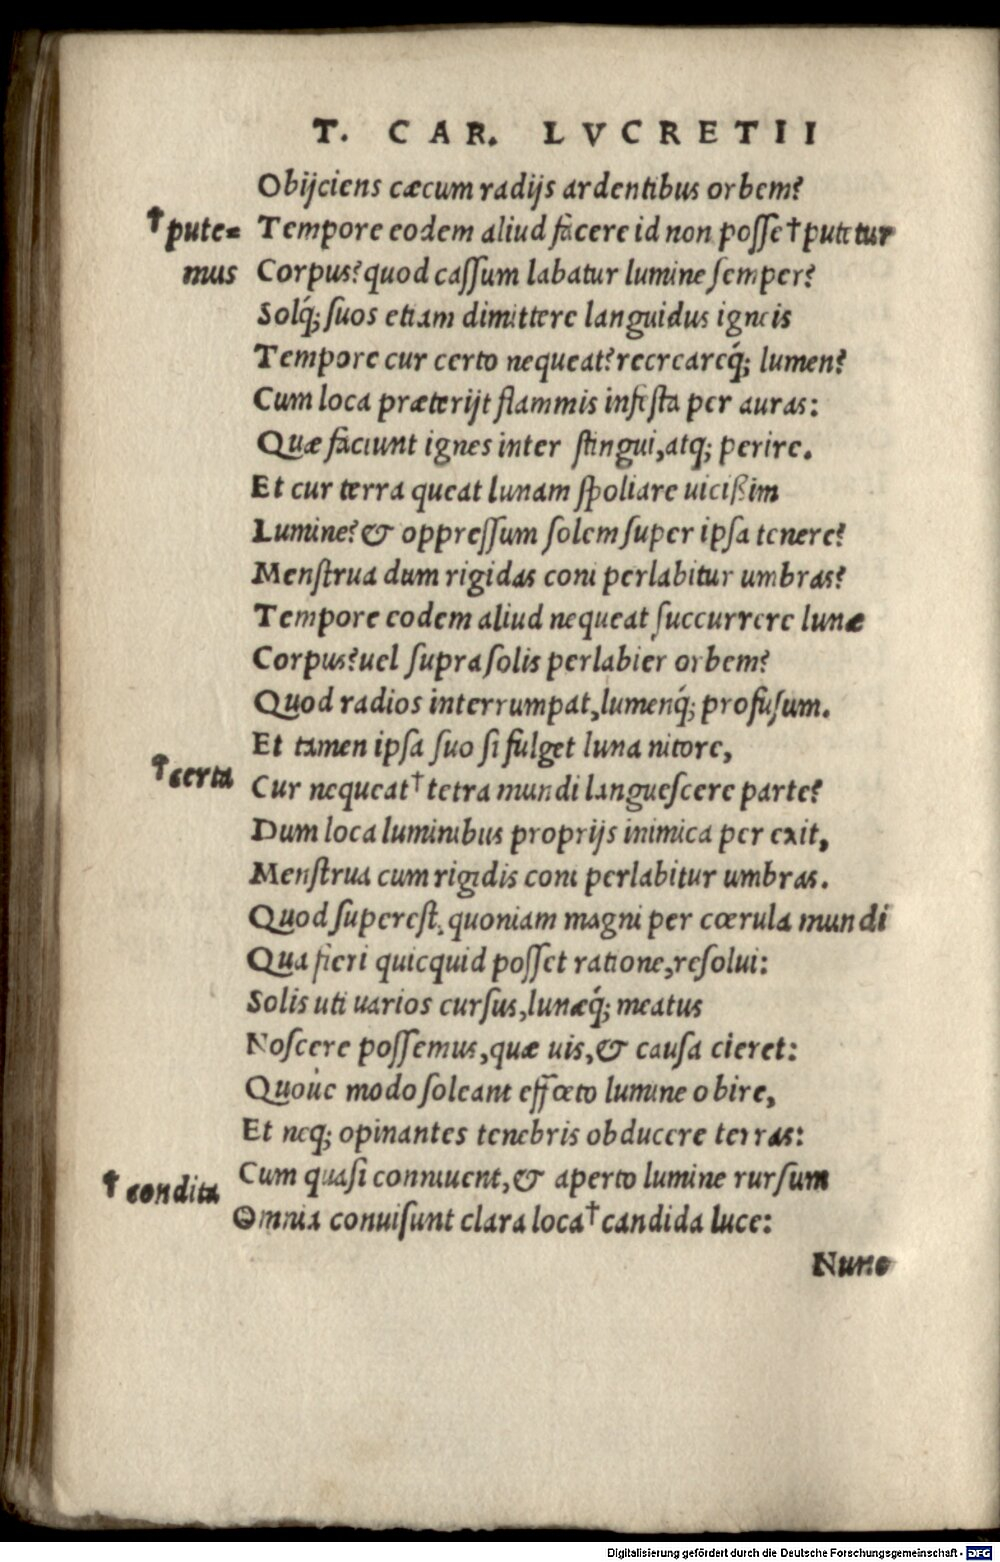 T. CAR. LVCRETII
Obijciens cæcum radijs ardentibus orbem?
†pute= Tempore eodem aliud facere id non posse †putetur
mus Corpus? quod cassum labatur lumine semper?
Solq́; suos etiam dimittere languidus igneis
Tempore cur certo nequeat? recreareq́; lumen?
Cum loca præterijt flammis infesta per auras:
Quæ faciunt ignes inter stingui, atq; perire.
Et cur terra queat lunam spoliare uicißim
Lumine? & oppressum solem super ipsa tenere?
Menstrua dum rigidas coni perlabitur umbras?
Tempore eodem aliud nequeat succurrere lunæ
Corpus? uel supra solis perlabier orbem?
Quod radios interrumpat, lumenq́; profusum.
Et tamen ipsa suo si fulget luna nitore,
†certa Cur nequeat †tetra mundi languescere parte?
Dum loca luminibus proprijs inimica per exit,
Menstrua cum rigidis coni perlabitur umbras.
Quod superest, quoniam magni per cœrula mundi
Qua fieri quicquid posset ratione, resolui:
Solis uti uarios cursus, lunæq́; meatus
Noscere possemus, quæ uis, & causa cieret:
Quoùe modo soleant effœto lumine obire,
Et neq; opinantes tenebris obducere terras:
Cum quasi conniuent, & aperto lumine rursum
†condita Omnia conuisunt clara loca †candida luce:
Nunc
Digitalisierung gefördert durch die Deutsche Forschungsgemeinschaft - DFG